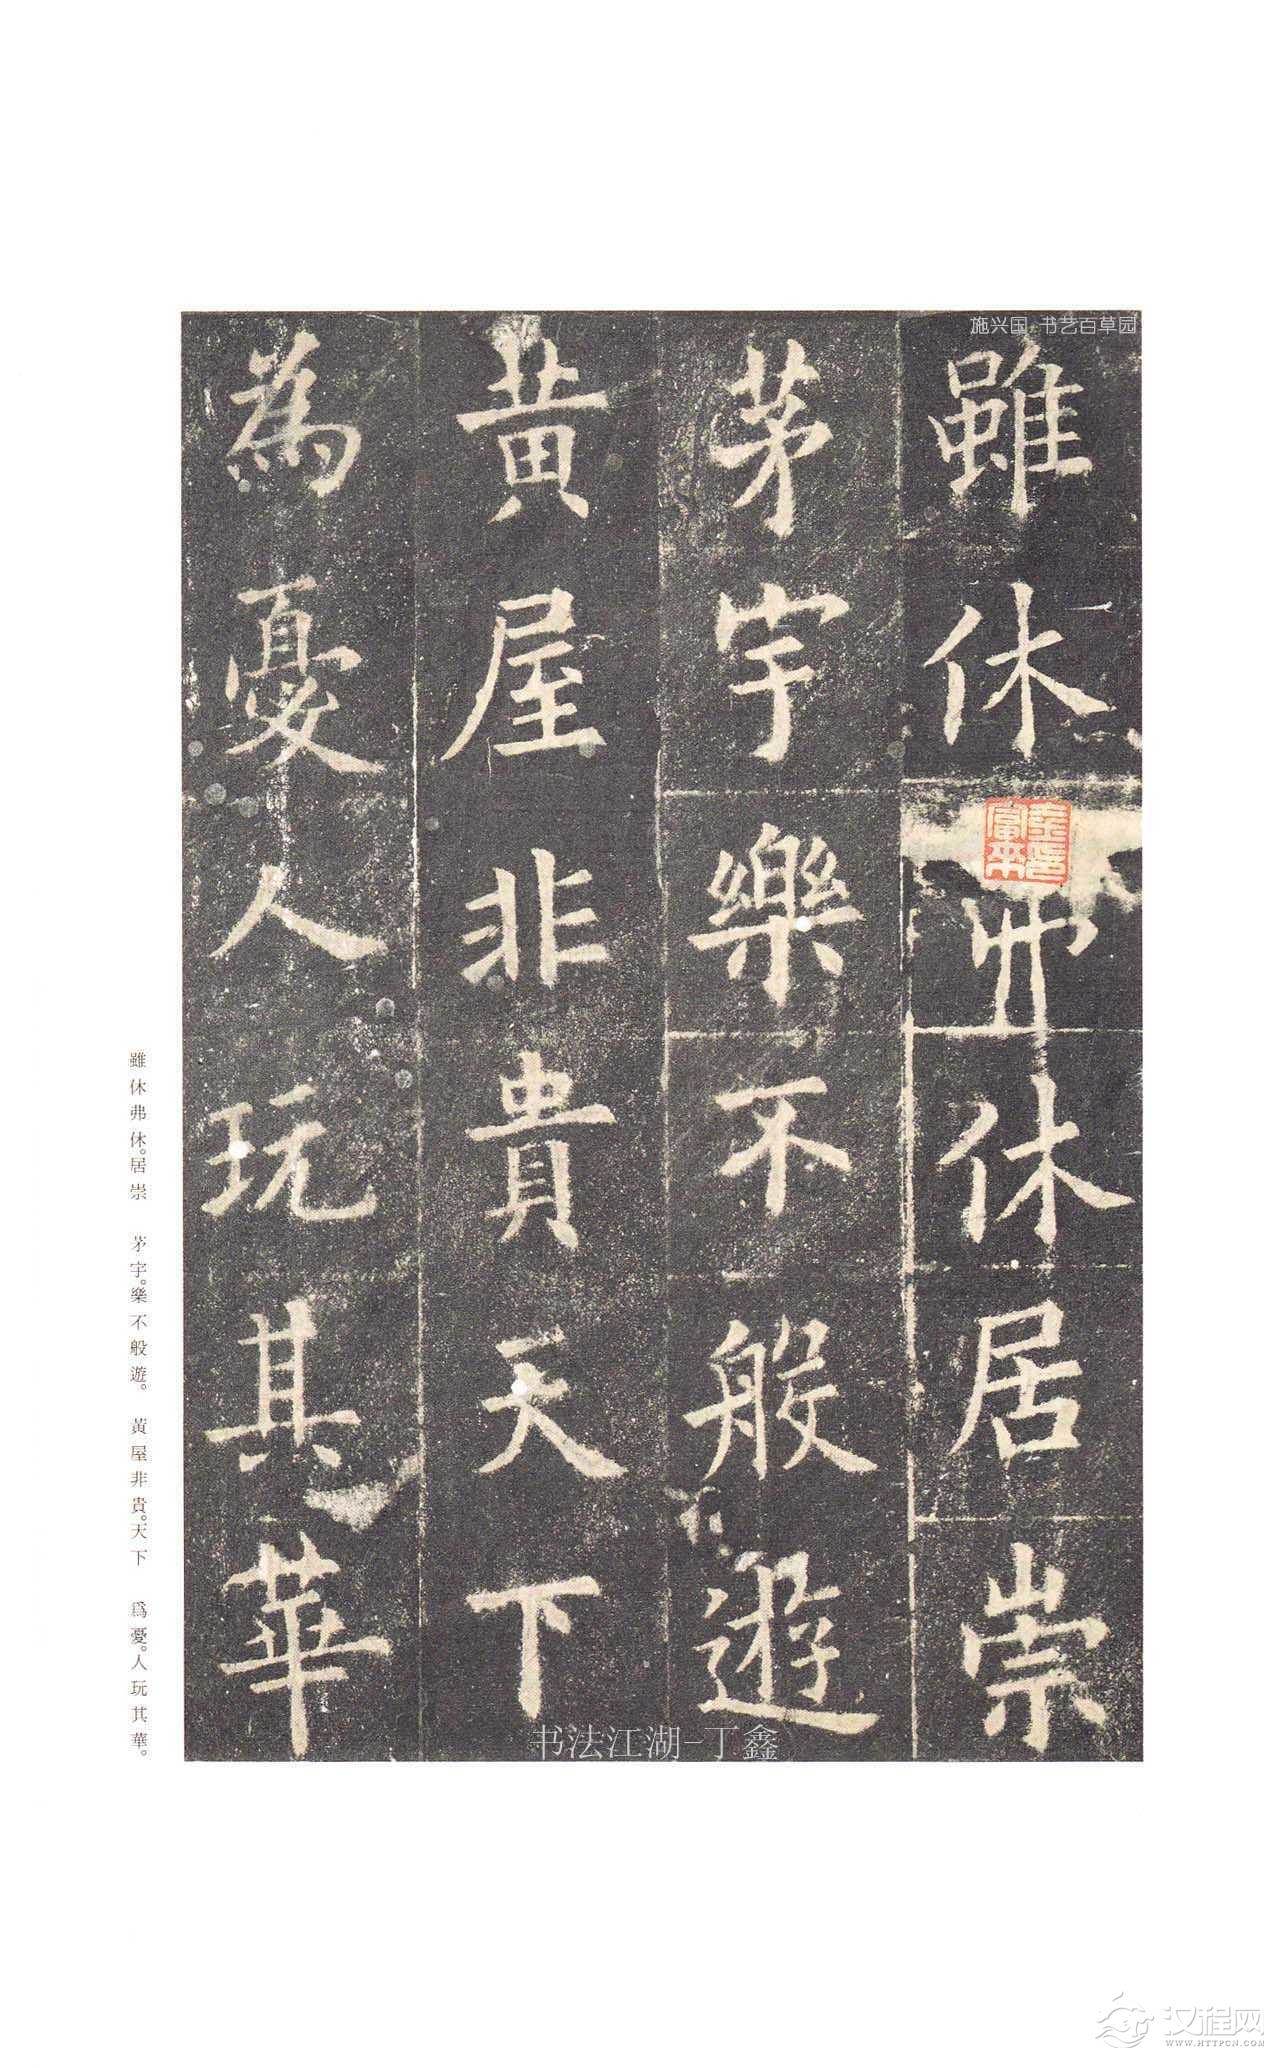 施兴国 书艺百草园
雖休弗休居崇
茅宇樂不般遊
黄屋非貴天下
為憂人玩其華
雖休弗休。居崇 茅宇。樂不般遊。 黃屋非貴。天下 爲憂。人玩其華。
书法江湖-丁鑫
汉程网
WWW.HTTPCN.COM